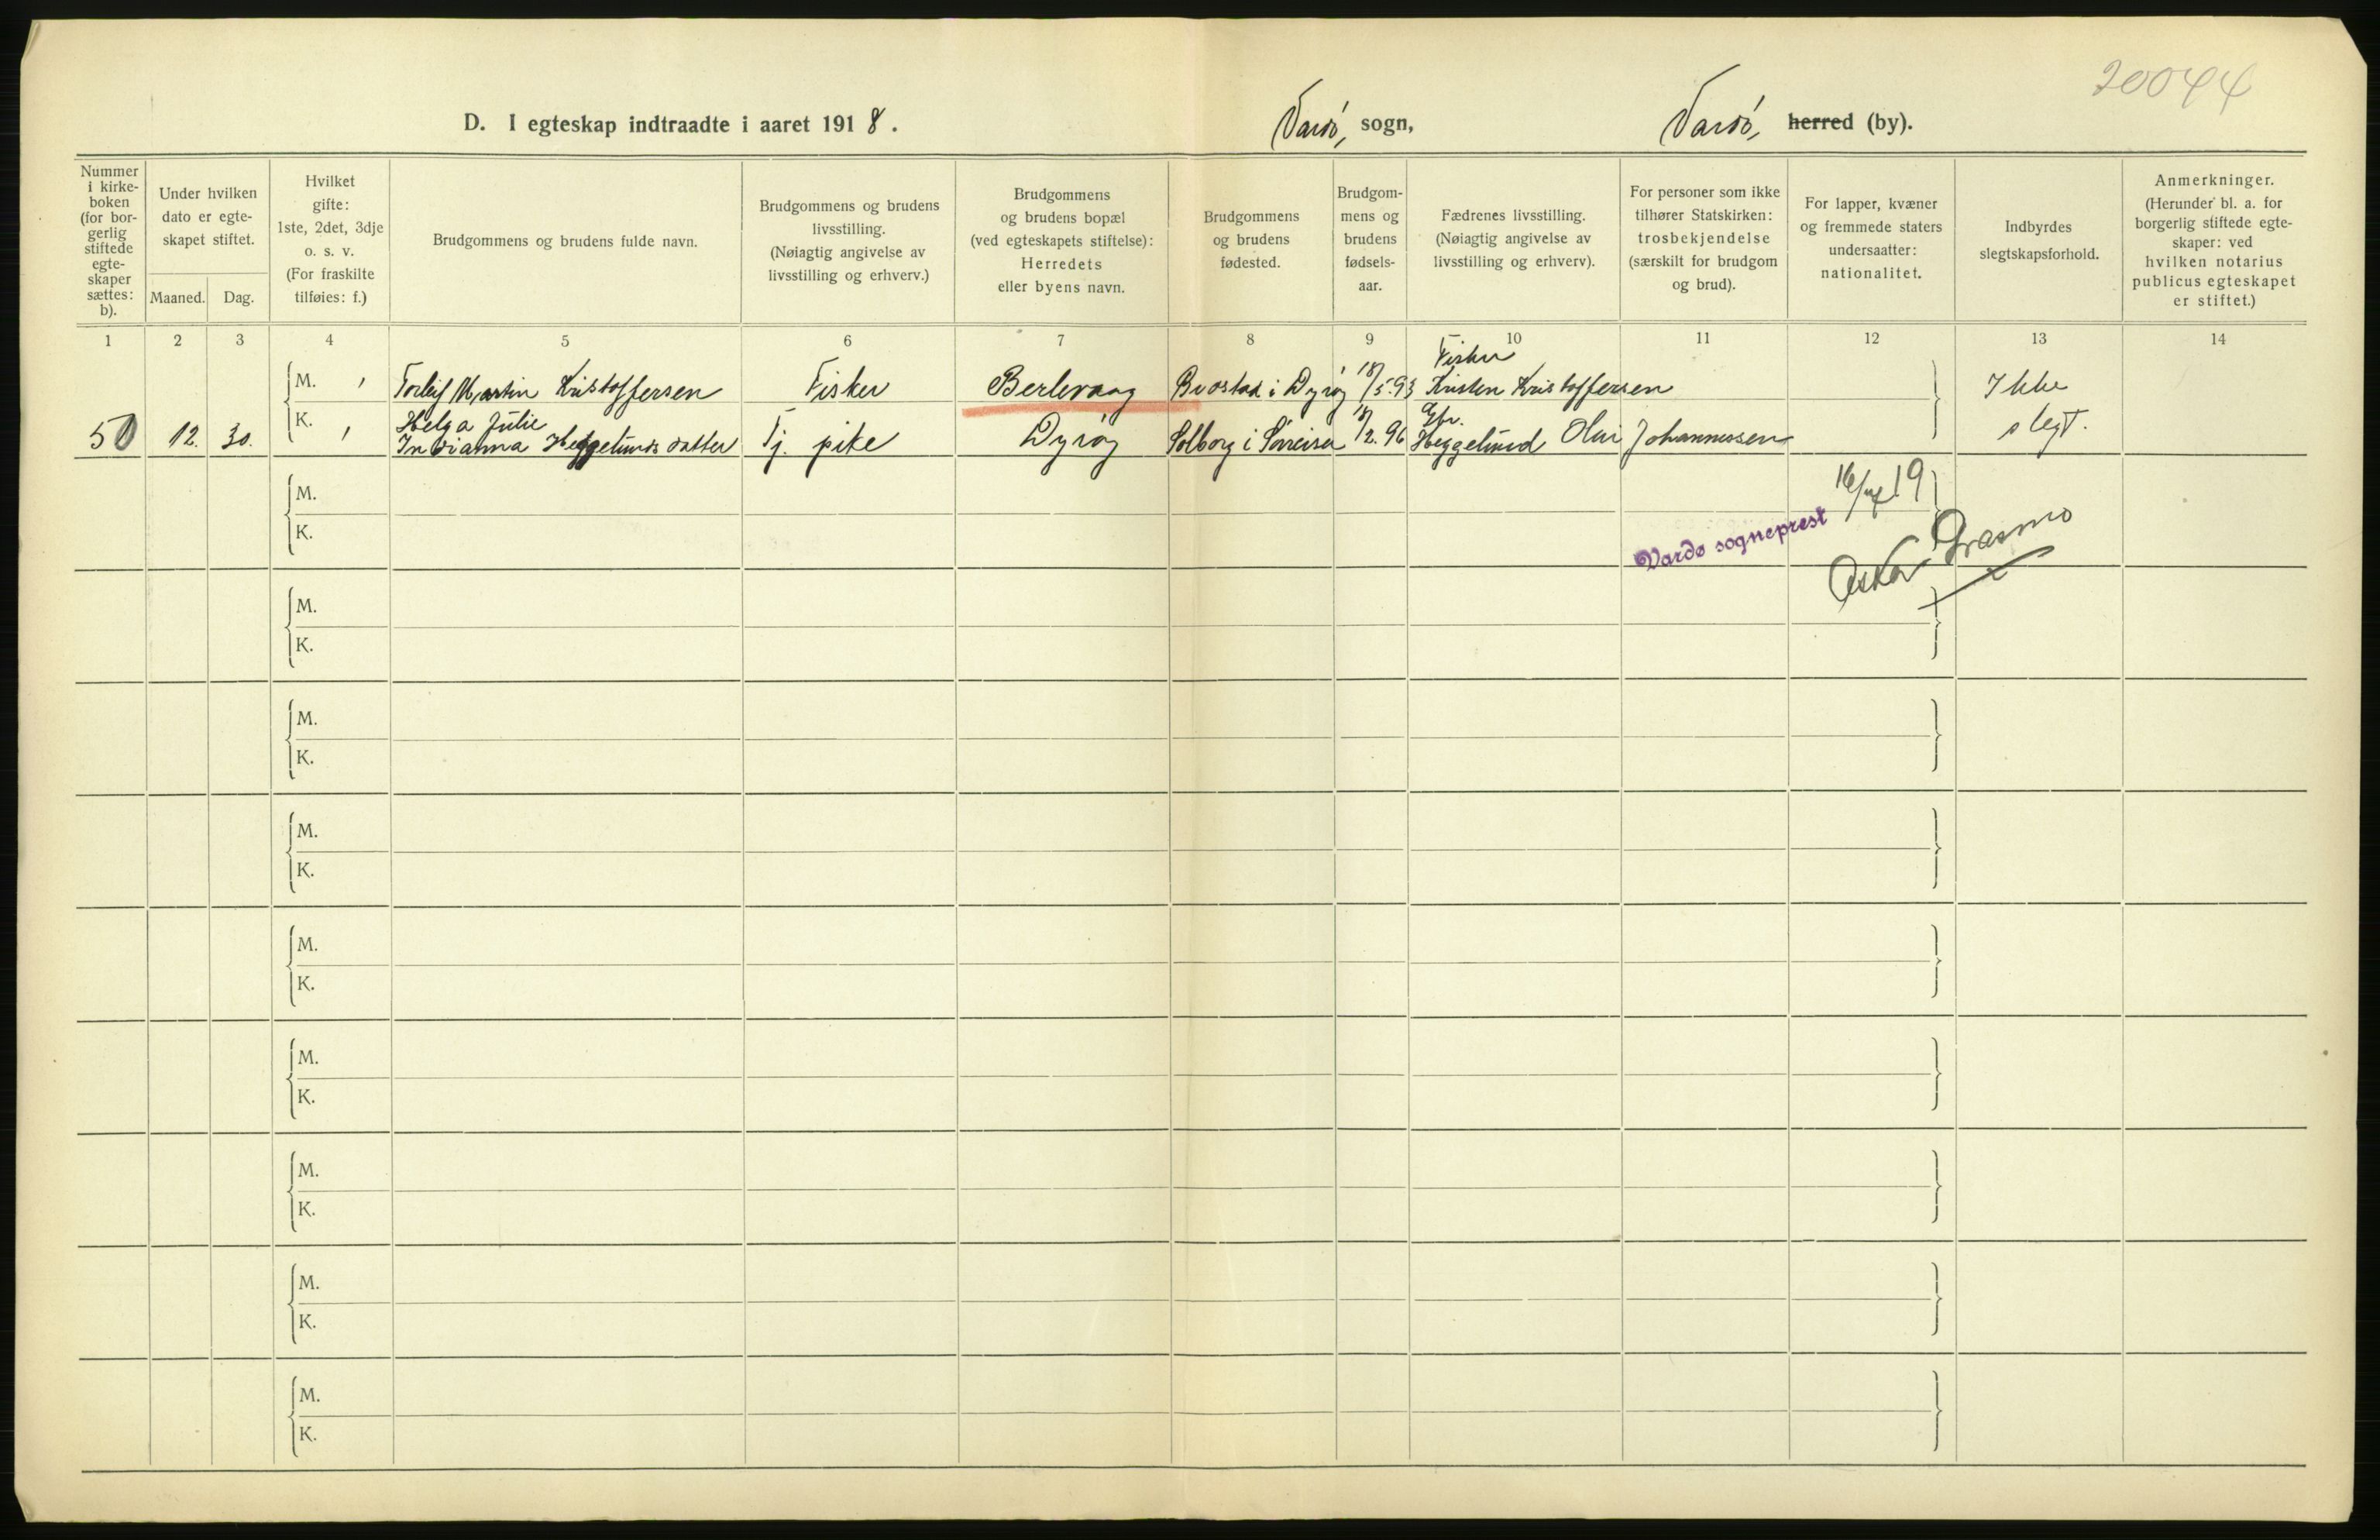 20044
D. I egteskap indtraadte i aaret 1918. Vardö, sogn, Vardö, herred (by).
Nummer i kirke-boken (for bor-gerlig stiftede egte-skaper sættes: b).
Under hvilken dato er egte-skapet stiftet.
Maaned. Dag.
Hvilket gifte: 1ste, 2det, 3dje o. s. v. (For fraskilte tilføies: f.)
Brudgommens og brudens fulde navn.
Brudgommens og brudens livsstilling. (Nøiagtig angivelse av livsstilling og erhverv.)
Brudgommens og brudens bopæl (ved egteskapets stiftelse): Herredets eller byens navn.
Brudgommens og brudens fødested.
Brudgom-mens og brudens fødsels-aar.
Fædrenes livsstilling. (Nøiagtig angivelse av livsstilling og erhverv).
For personer som ikke tilhører Statskirken: trosbekjendelse (særskilt for brudgom og brud).
For lapper, kvæner og fremmede staters undersaatter: nationalitet.
Indbyrdes slegtskapsforhold.
Anmerkninger. (Herunder bl. a. for borgerlig stiftede egte-skaper: ved hvilken notarius publicus egteskapet er stiftet.)
1 2 3 4 5 6 7 8 9 10 11 12 13 14
Fisker
M. , Torleif Martin Kristoffersen Fisker Berlevaag Brostad i Dyröy 18/5.93 Kristen Kristoffersen Ikke
Helga Julie Gbr.
50 12. 30. K. , Indianna Heggelundsdatter Tj. pike Dyröy Solborg i Sörreisa 18/2.96 Heggelund Olai Johannessen slegt.
M. 16/4 19
K. Vardø sogneprest
Oskar
M.
K.
M.
K.
M.
K.
M.
K.
M.
K.
M.
K.
M.
K.
M.
K.